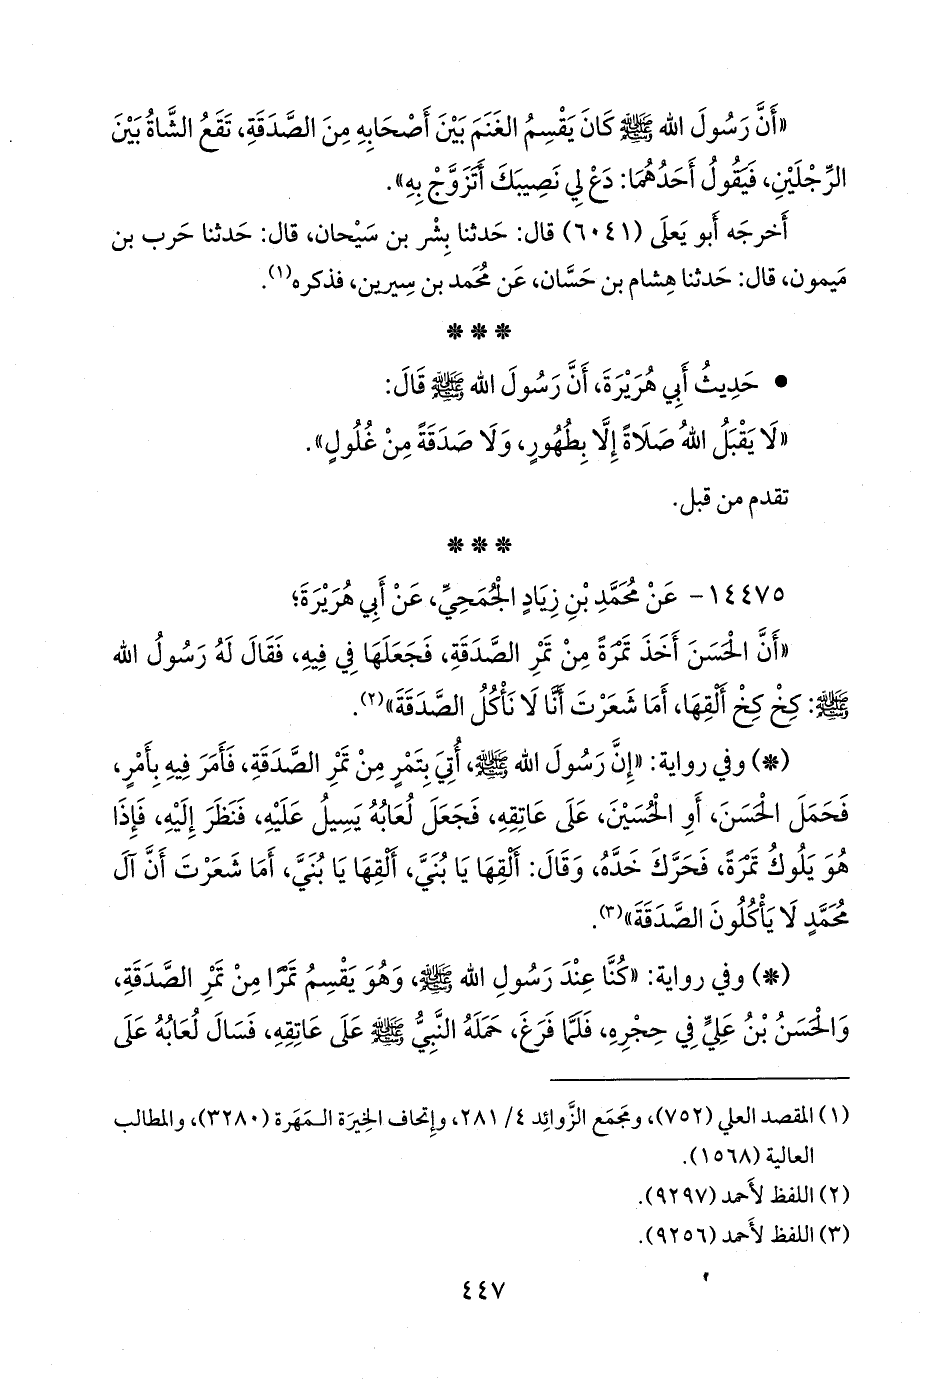 «أَنَّ رَسُولَ الله ﷺ كَانَ يَقْسِمُ الْغَنَمَ بَيْنَ أَصْحَابِهِ مِنَ الصَّدَقَةِ، تَقَعُ الشَّاةُ بَيْنَ
الرَّجُلَيْنِ، فَيَقُولُ أَحَدُهُمَا: دَعْ لِي نَصِيبَكَ أَتَزَوَّجْ بِهِ».
أَخرجَه أَبو يَعلَى (٦٠٤١) قال: حَدثنا بِشْر بن سَيْحان، قال: حَدثنا حَرب بن
مَيمون، قال: حَدثنا هِشام بن حَسَّان، عَن مُحمد بن سِيرين، فذكره(١).
* * *
• حَدِيثُ أَبِي هُرَيْرَةَ، أَنَّ رَسُولَ الله ﷺ قَالَ:
«لَا يَقْبَلُ اللهُ صَلَاةً إِلَّا بِطُهُورٍ، وَلَا صَدَقَةً مِنْ غُلُولٍ».
تقدم من قبل.
* * *
١٤٤٧٥- عَنْ مُحَمَّدِ بْنِ زِيَادٍ الْجُمَحِيِّ، عَنْ أَبِي هُرَيْرَةَ؛
«أَنَّ الْحَسَنَ أَخَذَ تَمْرَةً مِنْ تَمْرِ الصَّدَقَةِ، فَجَعَلَهَا فِي فِيهِ، فَقَالَ لَهُ رَسُولُ الله
ﷺ: كِخْ كِخْ أَلْقِهَا، أَمَا شَعَرْتَ أَنَّا لَا نَأْكُلُ الصَّدَقَةَ»(٢).
(*) وفي رواية: «إِنَّ رَسُولَ الله ﷺ، أُتِيَ بِتَمْرٍ مِنْ تَمْرِ الصَّدَقَةِ، فَأَمَرَ فِيهِ بِأَمْرٍ،
فَحَمَلَ الْحَسَنَ، أَوِ الْحُسَيْنَ، عَلَى عَاتِقِهِ، فَجَعَلَ لُعَابُهُ يَسِيلُ عَلَيْهِ، فَنَظَرَ إِلَيْهِ، فَإِذَا
هُوَ يَلُوكُ تَمْرَةً، فَحَرَّكَ خَدَّهُ، وَقَالَ: أَلْقِهَا يَا بُنَيَّ، أَلْقِهَا يَا بُنَيَّ، أَمَا شَعَرْتَ أَنَّ آلَ
مُحَمَّدٍ لَا يَأْكُلُونَ الصَّدَقَةَ»(٣).
(*) وفي رواية: «كُنَّا عِنْدَ رَسُولِ الله ﷺ، وَهُوَ يَقْسِمُ تَمْرًا مِنْ تَمْرِ الصَّدَقَةِ،
وَالْحَسَنُ بْنُ عَلِيٍّ فِي حِجْرِهِ، فَلَمَّا فَرَغَ، حَمَلَهُ النَّبِيُّ ﷺ عَلَى عَاتِقِهِ، فَسَالَ لُعَابُهُ عَلَى
(١) المقصد العلي (٧٥٢)، ومَجمَع الزَّوائِد ٤/ ٢٨١، وإِتحاف الخِيرَة المَهَرة (٣٢٨٠)، والمطالب
العالية (١٥٦٨).
(٢) اللفظ لأَحمد (٩٢٩٧).
(٣) اللفظ لأَحمد (٩٢٥٦).
٤٤٧